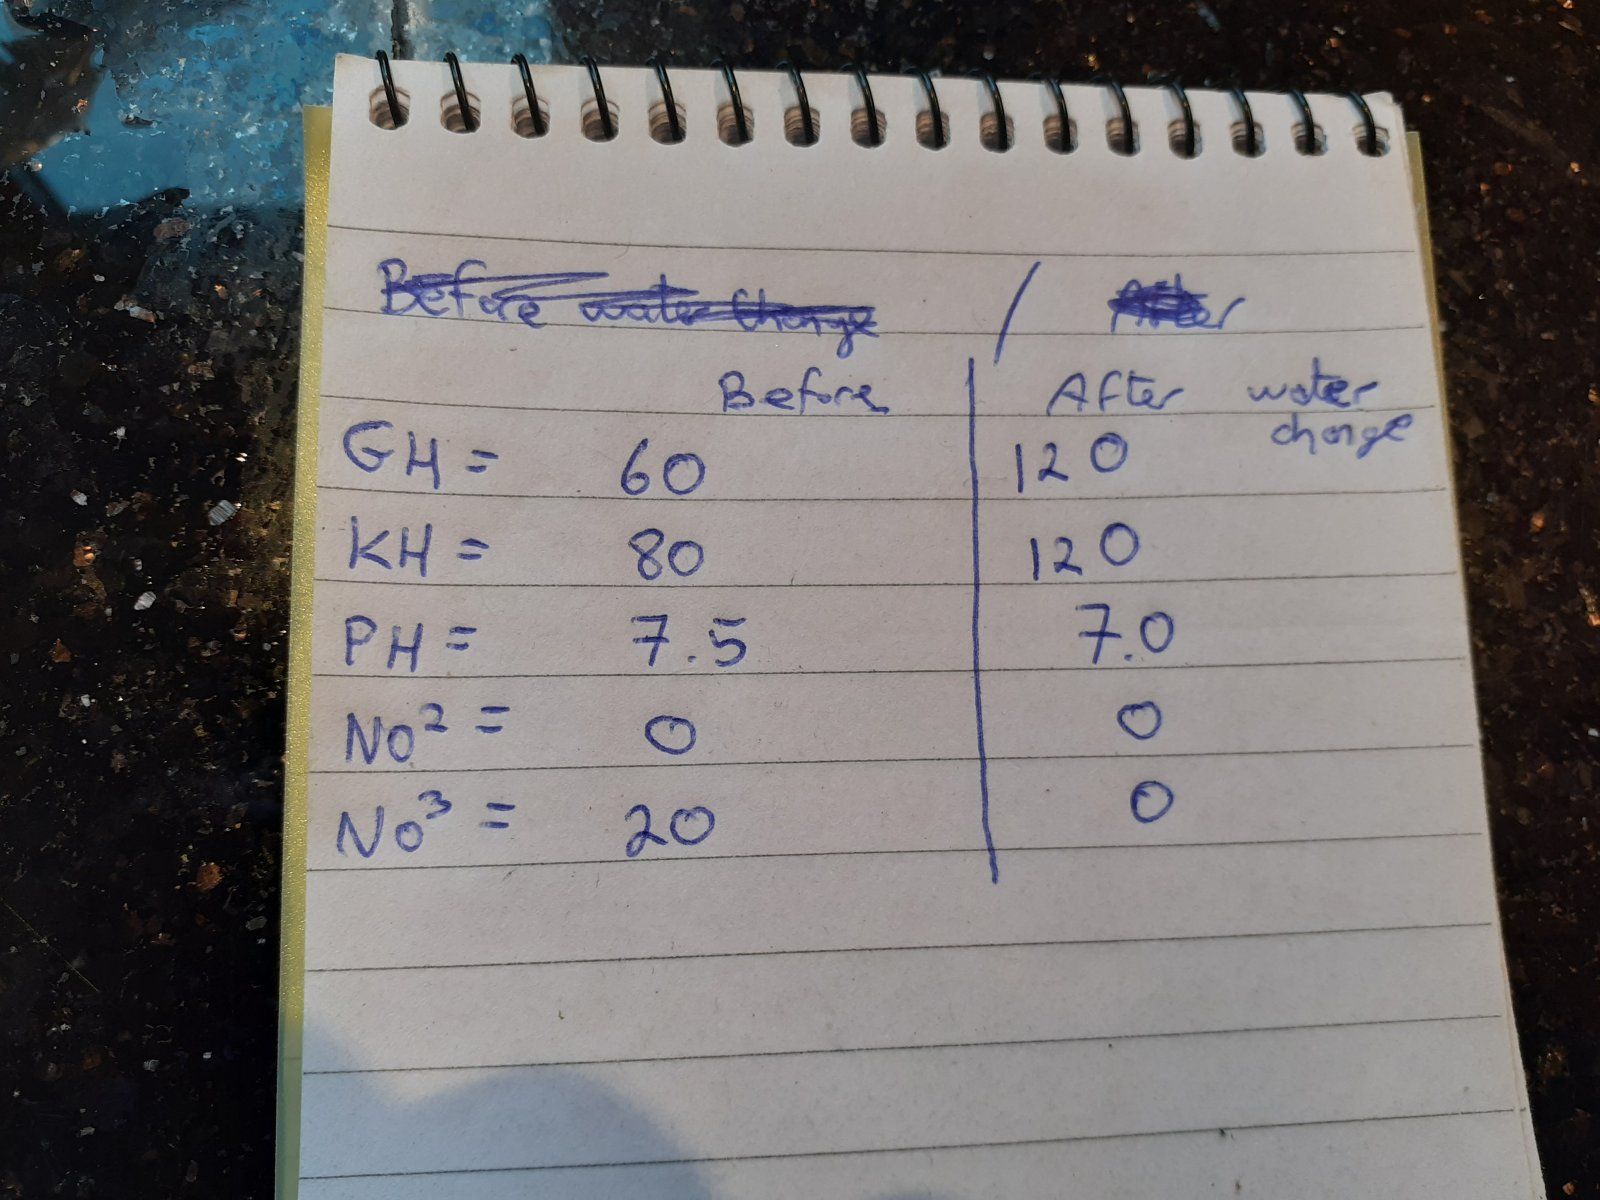 Before water change / After
Before | After water
change
GH = 60 | 120
KH = 80 | 120
PH = 7.5 | 7.0
No² = 0 | 0
No³ = 20 | 0